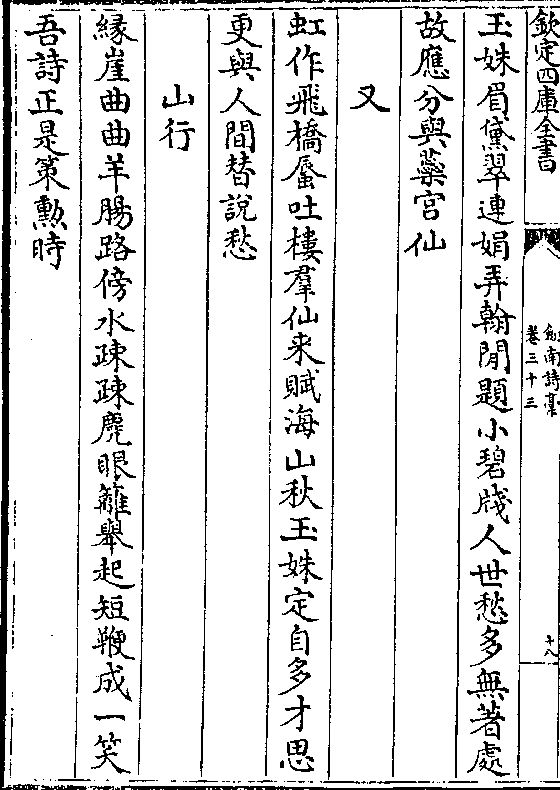 欽定四庫全書
劍南詩藁
卷三十三
十八
玉姝眉黛翠連娟弄翰閒題小碧牋人世愁多無著處
故應分與蘂宫仙
又
虹作飛橋蜃吐樓羣仙来賦海山秋玉姝定自多才思
更與人間替說愁
山行
縁崖曲曲羊腸路傍水疎疎麂眼籬舉起短鞭成一笑
吾詩正是策勲時